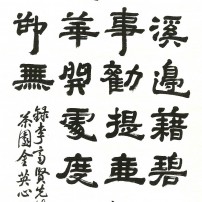 溪邊藉碧
事勸提壺
華開處度
無
錄李高賢先
茶園金英心